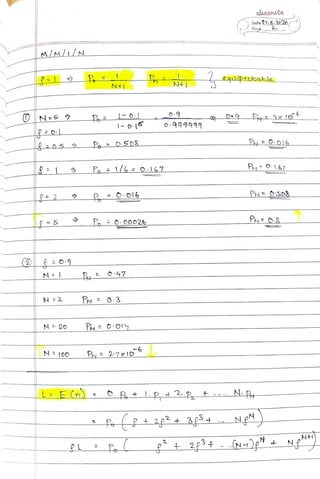 discrete
M/M/1/N
ρ=1 ⇒ P₀ = 1/N+1 Pₙ = 1/N+1 } equiprobable
① N=5 ⇒ P₀ = 1-0.1/1-0.1⁶ = 0.9/0.999999 = 0.9 P_N = 9x10⁻⁶
ρ=0.1
ρ=0.5 ⇒ P₀ = 0.508 P_N = 0.016
ρ=1 ⇒ P₀ = 1/6 = 0.167 P_N = 0.167
ρ=2 ⇒ P₀ = 0.016 P_N = 0.508
ρ=5 ⇒ P₀ = 0.00026 P_N = 0.8 ↑
② ρ=0.9
N=1 P_N = 0.47
N=2 P_N = 0.3
N=20 P_N = 0.014
N=100 P_N = 2.7x10⁻⁶ ↓
L = E(n) = 0.P₀ + 1.P₁ + 2.P₂ + .... N.P_N
= P₀ ( ρ + 2ρ² + 3ρ³ + ... Nρᴺ )
ρL = P₀ ( ρ² + 2ρ³ + .. (N-1)ρᴺ + Nρᴺ⁺¹)